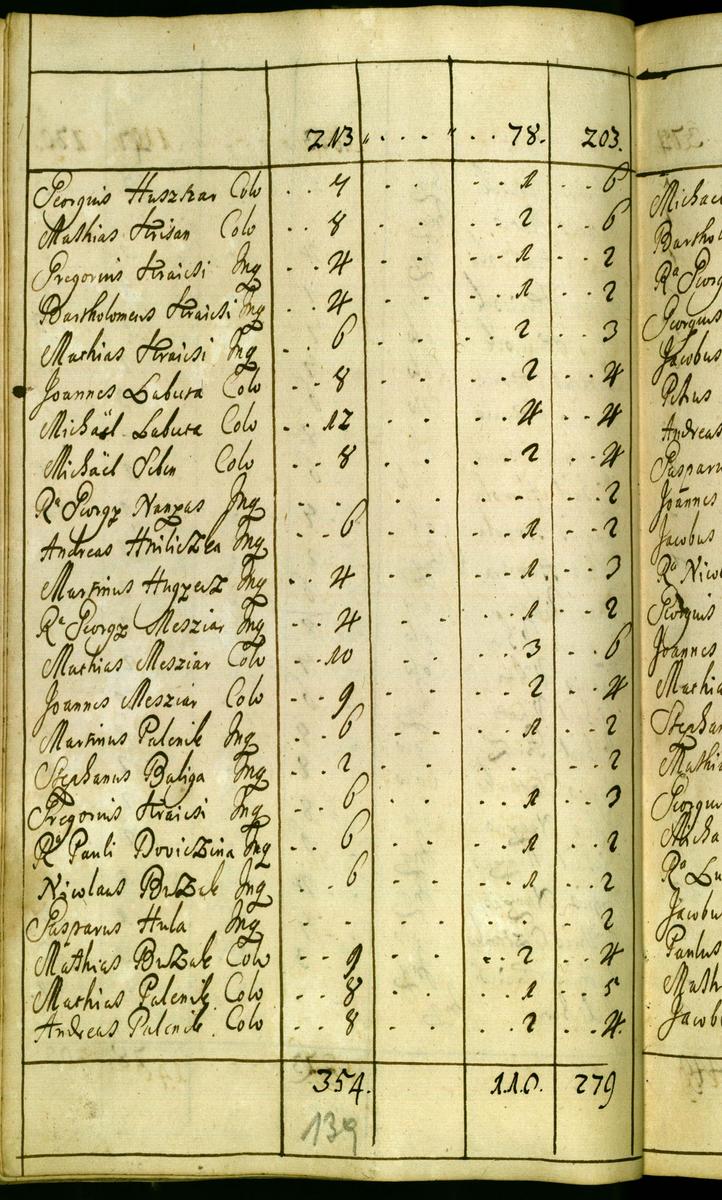 213 " . . . " . . 78. 203.
Georgius Huszkar Colo . . 7 . . 1 . . 6
Mathias Krisan Colo . . 8 . . 2 . . 6
Gregorius Kraicsi Inq . . 4 . . 1 . . 2
Bartholomeus Kraicsi Inq . . 4 . . 1 . . 2
Mathias Kraicsi Inq . . 6 . . 2 . . 3
Joannes Labuta Colo . . 8 . . 2 . . 4
Michäel Labuta Colo . . 12 . . 4 . . 4
Michäel Colo . . 8 . . 2 . . 4
Ra Georgy Inq . . . . . . 2
Andreas Hniliczka Inq . . 6 . . 1 . . 2
Martinus Inq . . 4 . . 1 . . 3
Ra Georgy Mesziar Inq . . 4 . . 1 . . 2
Mathias Mesziar Colo . . 10 . . 3 . . 6
Joannes Mesziar Colo . . 9 . . 2 . . 4
Martinus Palenik Inq . . 6 . . 1 . . 2
Stephanus Baliga Inq . . 2 . . . . 2
Gregorius Kraicsi Inq . . 6 . . 1 . . 3
Ra Pauli Doviczina Inq . . 6 . . 1 . . 2
Nicolaus Buzak Inq . . 6 . . 1 . . 2
Gasparus Hula Inq . . . . . . 2
Mathias Buzak Colo . . 9 . . 2 . . 4
Mathias Palenik Colo . . 8 . . 1 . . 5
Andreas Palenik Colo . . 8 . . 2 . . 4.
354. 110. 279
139
Michae
Bartho
Ra Georg
Georgius
Jacobus
Petrus
Andreas
Gasparu
Joannes
Jacobus
Ra Nico
Georgius
Joannes
Mathia
Stephan
Mathi
Georgiu
Micha
Ra Lu
Jacobu
Paulus
Math
Jacob